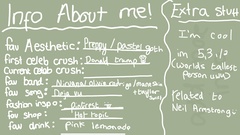 Info About me!
fav Aesthetic: Preppy/pastel goth
first celeb crush: Donald trump
Current celeb crush:
fav band: Nirvana/olivia rodrigo/maneskin
+taylor
fav song: Deja vu
Fashion inspo: pintrest
fav shop: Hot topic
fav drink: Pink lemonade
Extra stuff
I'm cool
im 5,3 1/2
(worlds tallest
person uwu)
related to
Neil Armstrong